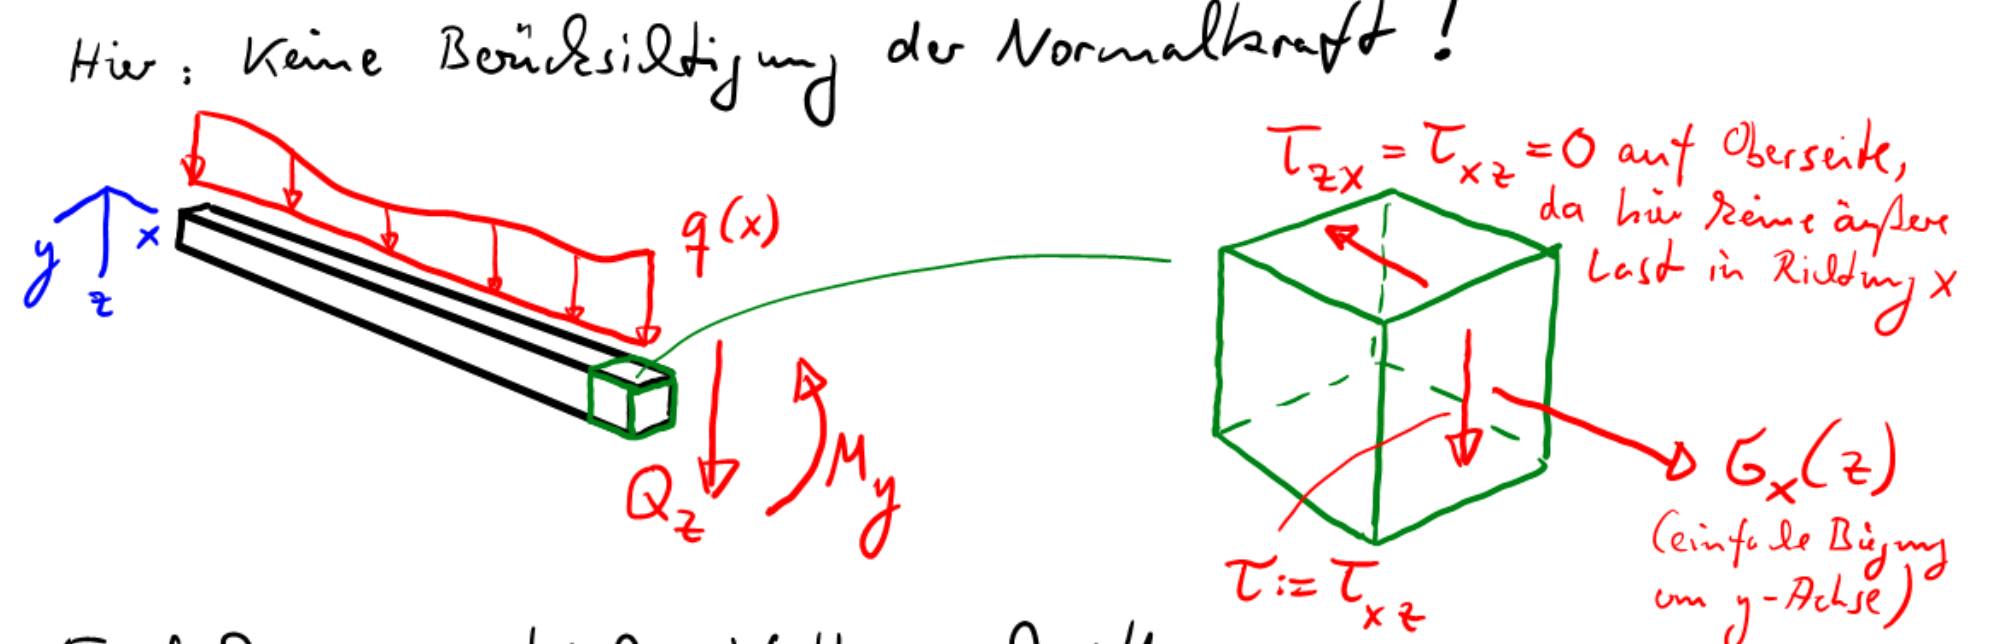 Hier: Keine Berücksichtigung der Normalkraft!
τzx = τxz = 0 auf Oberseite,
da hier keine äußere
Last in Richtung x
q(x)
y x
z
Qz
My
σx(z)
(einfache Biegung
um y-Achse)
τ := τxz